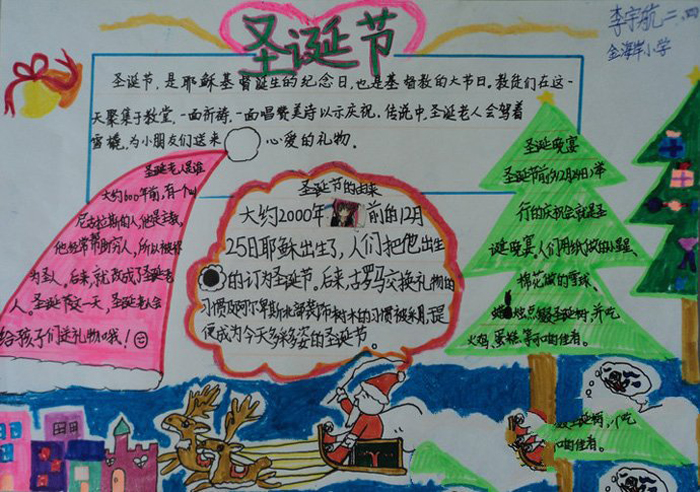 圣诞节
李宇航二.四
金海岸小学
圣诞节，是耶稣基督诞生的纪念日，也是基督教的大节日。教徒们在这一
天聚集于教堂，一面祈祷，一面唱赞美诗以示庆祝。传说中，圣诞老人会驾着
雪橇，为小朋友们送来心爱的礼物。
圣诞老人是谁
大约1600年前，有个叫
尼古拉斯的人，他是主教，
他经常帮助穷人，所以被称
为圣人。后来，就改成了圣诞老
人。圣诞节这一天，圣诞老人会
给孩子们送礼物哦！
圣诞节的由来
大约2000年前的12月
25日耶稣出生了，人们把他出生
的订为圣诞节。后来，古罗马交换礼物的
习惯及阿尔卑斯北部装饰树木的习惯被采用，于是
便成为今天多采多姿的圣诞节。
圣诞晚宴
圣诞节前夕12月24日举
行的庆祝会就是圣
诞晚宴，人们用纸做的小星星、
棉花做的雪球、
点缀圣诞树，并吃
火鸡、蛋糕、等可口的佳肴。
圣诞树，并吃
可口的佳肴。